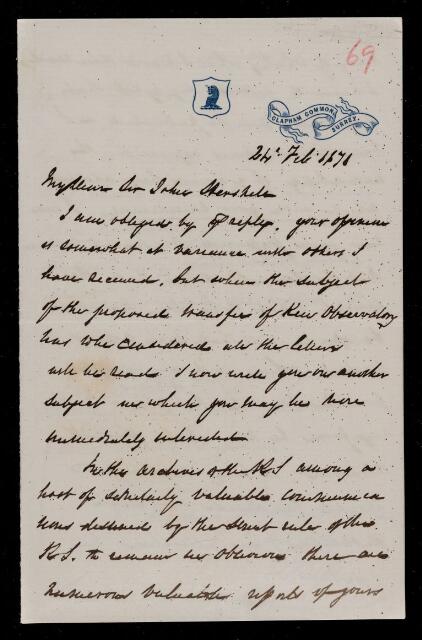 69
CLAPHAM COMMON
SURREY.
24th Feb 1871
My dear Sir John Herschel
I am obliged by yr reply. your opinion
is somewhat at variance with others I
have received, but when the subject
of the proposed transfer of Kew Observatory
has to be considered all the letters
will be read. I now write you on another
subject in which you may be more
immediately interested
In the archives of the RS among a
host of similarly valuable communica
tions destined by the strict rules of the
RS. to remain in oblivion there are
numerous valuable reports of yours